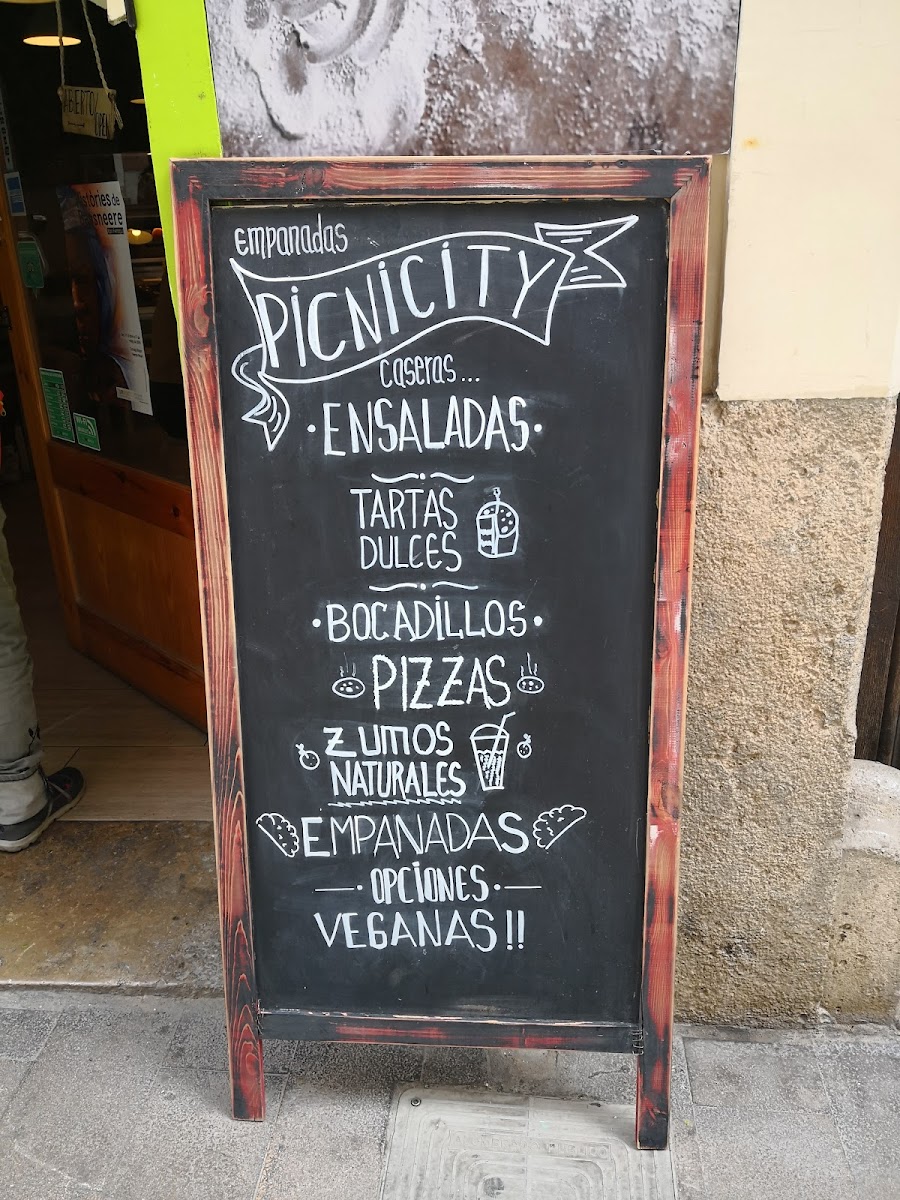 ABIERTO/
OPEN
stòries de
empanadas
PICNICITY
caseras...
·ENSALADAS·
TARTAS
DULCES
·BOCADILLOS·
PIZZAS
ZUMOS
NATURALES
EMPANADAS
—·OPCIONES·—
VEGANAS!!